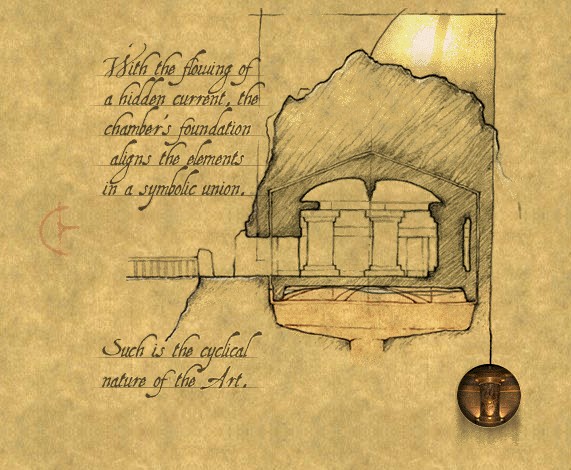 With the flowing of
a hidden current, the
chamber's foundation
aligns the elements
in a symbolic union.
Such is the cyclical
nature of the Art.